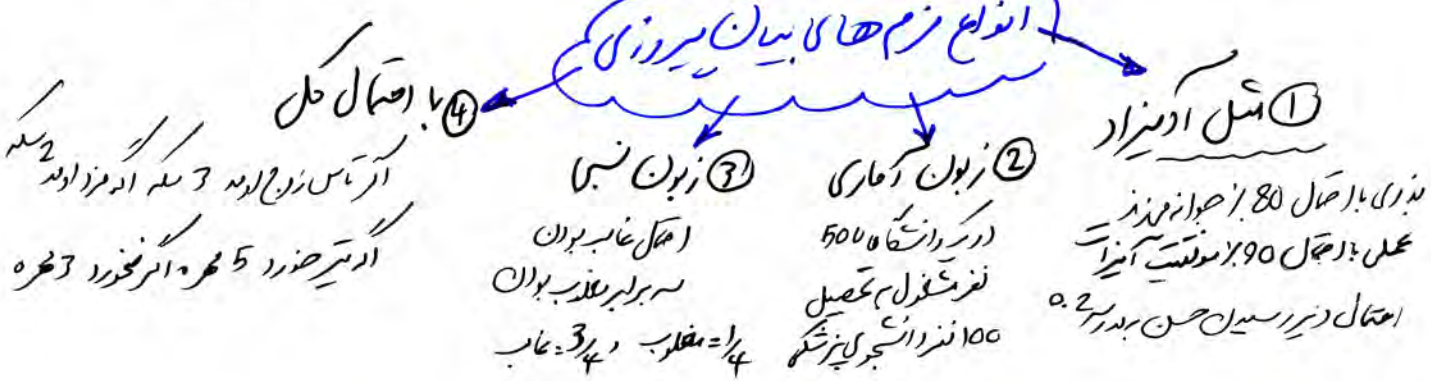 انواع فرم های بیان پیروزی
① مثل آدمیزاد
بذری با احتمال 80٪ جوانه میزند
عملی با احتمال 90٪ موفقیت آمیز است
احتمال دیر رسیدن حسن به مدرسه 0.2
② زبون آماری
در یک دانشگاه 500
نفر مشغول به تحصیل
100 نفر دانشجوی پزشکی
③ زبون نسبی
احتمال غالب بودن
سه برابر مغلوب بودن
1/4 = مغلوب و 3/4 = غالب
④ با احتمال کل
اگر تاس زوج اومد 3 سکه اگه فرد اومد 2 سکه
اگه تیر خورد 5 مهره اگر نخورد 3 مهره